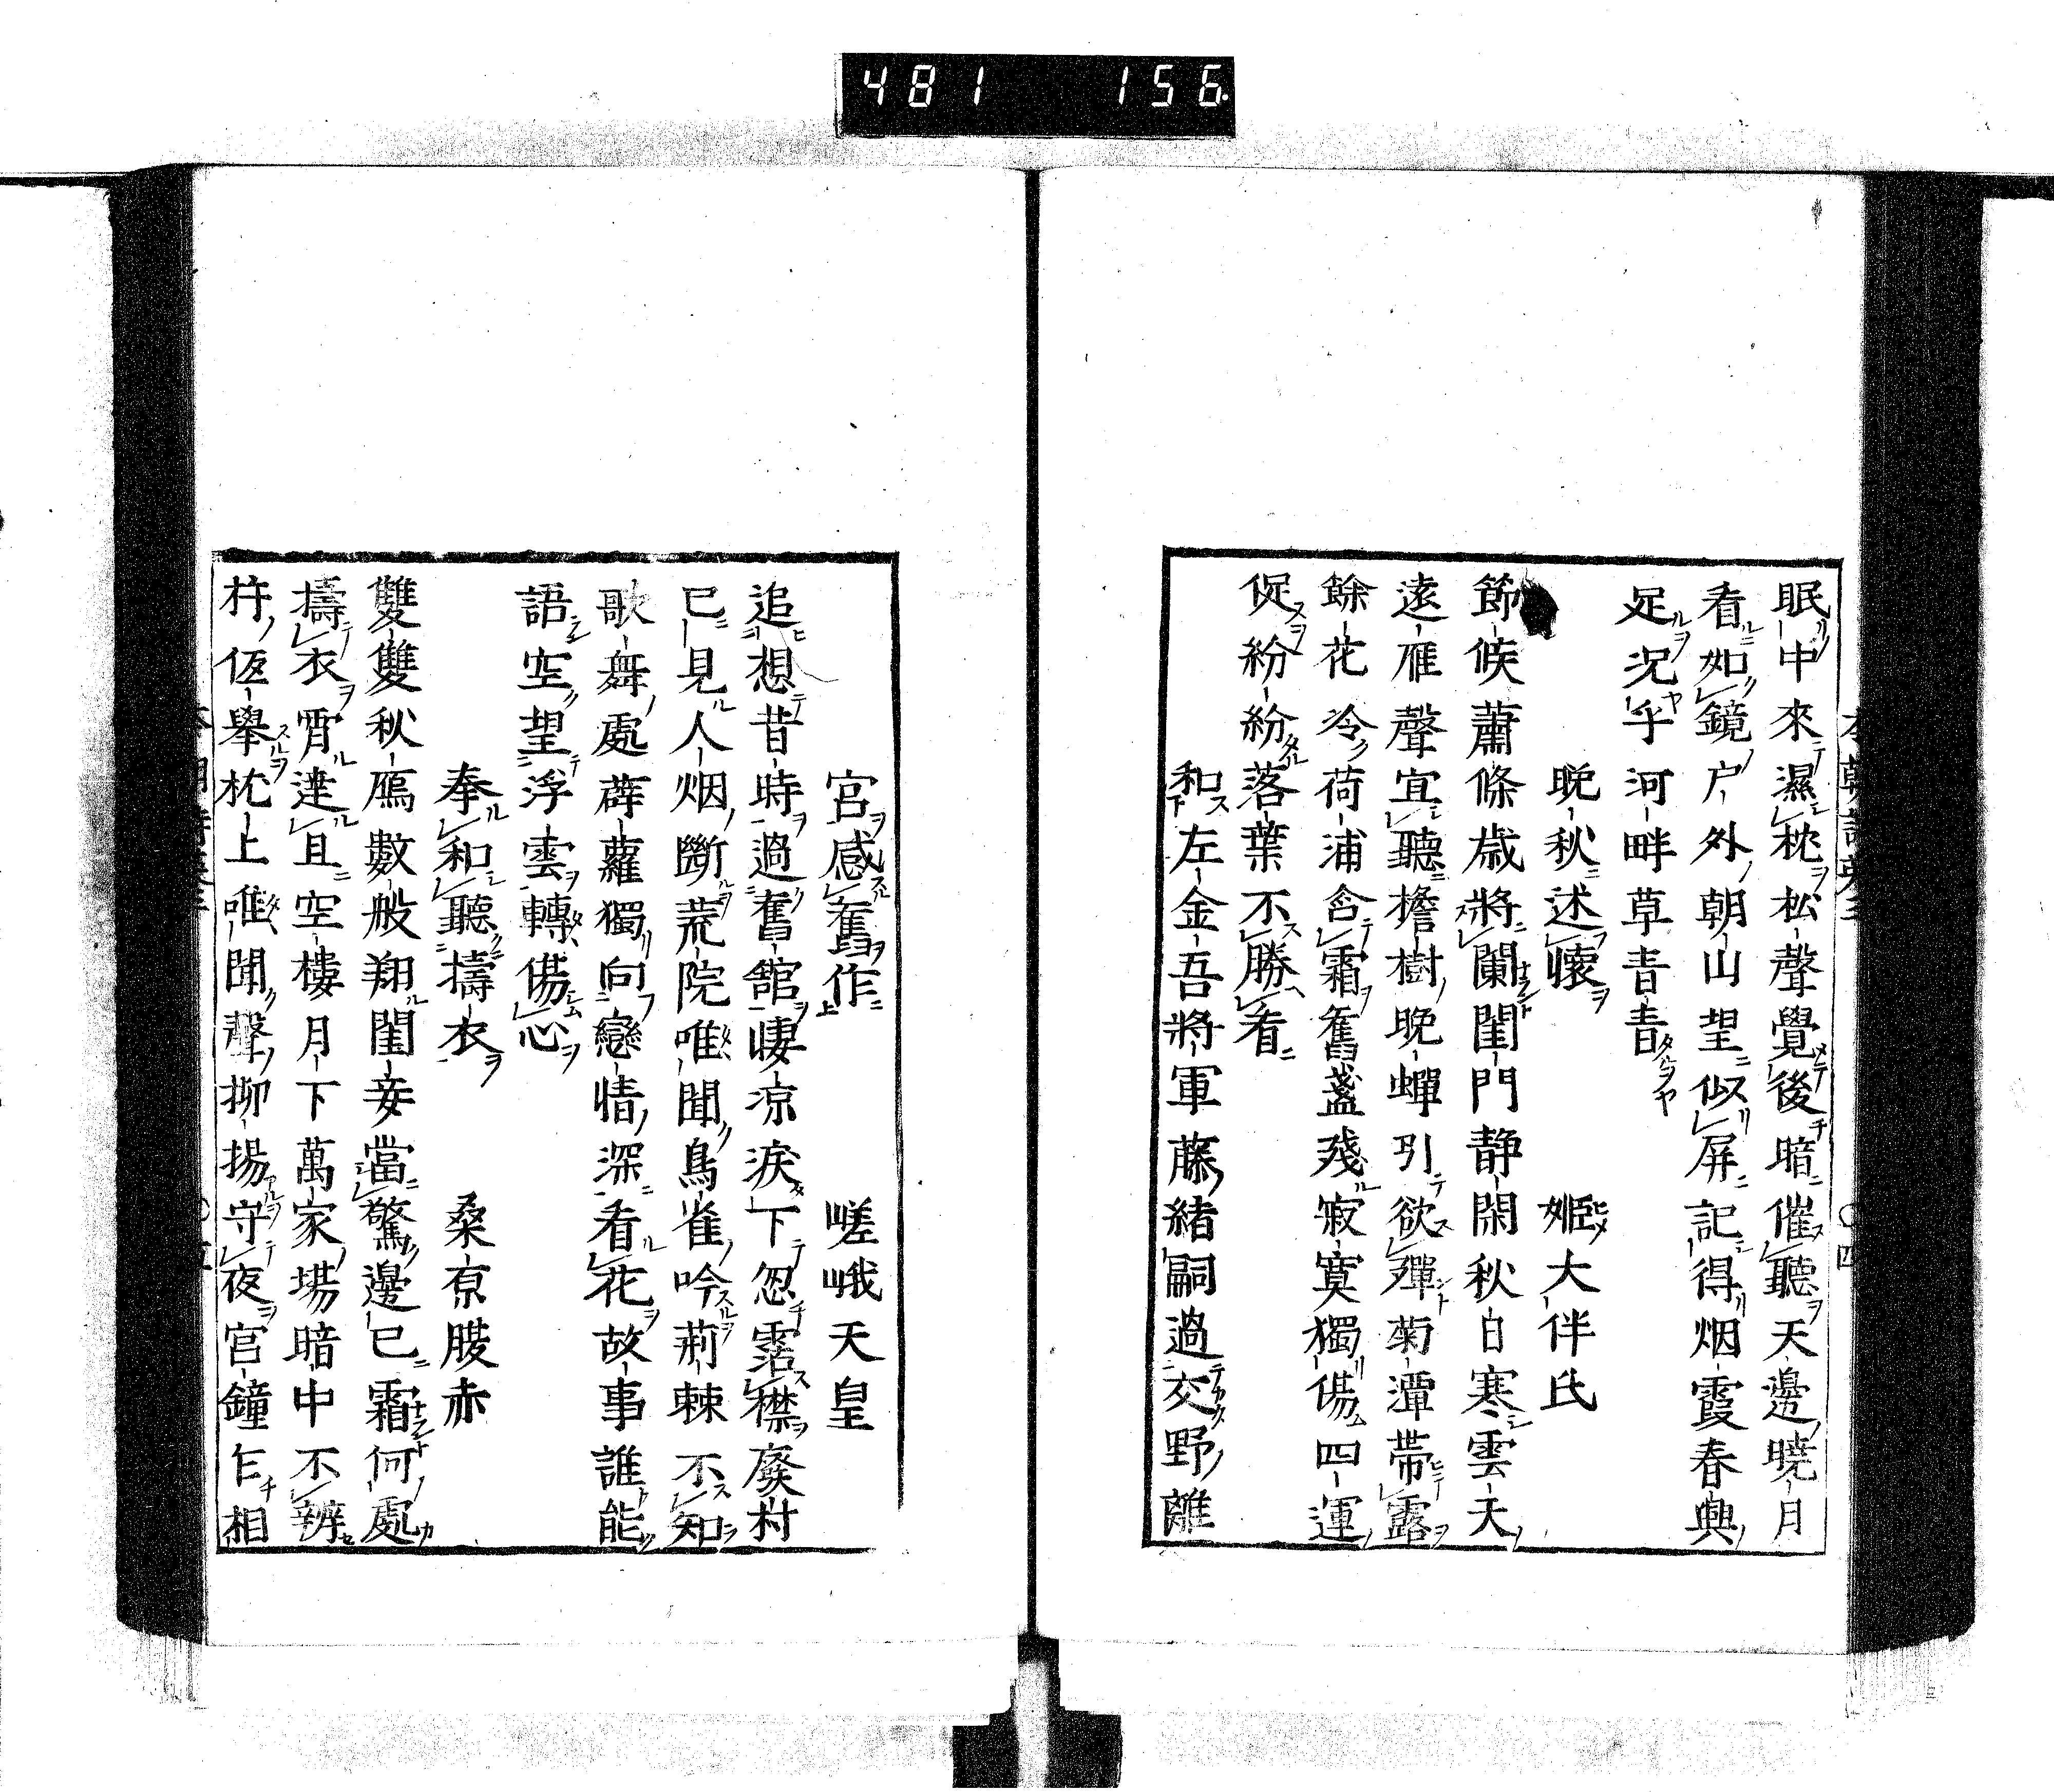 481 156
眠中來濕枕松聲覺後暗催聽天邊曉月
看如鏡戶外朝山望似屏記得烟霞春興
足況乎河畔草青青
晚秋述懷 姬大伴氏
節候蕭條歲將闌閨門静閑秋日寒雲天
遠雁聲宜聽檐樹晚蟬引欲殫菊潭帶露
餘花冷荷浦含霜舊盞殘寂寞獨傷四運
促紛紛落葉不勝看
和左金吾將軍藤緒嗣過交野離
宮感舊作 嵯峨天皇
追想昔時過舊館悽凉淚下忽霑襟廢村
已見人烟斷荒院唯聞鳥雀吟荊棘不知
歌舞處薜蘿獨向戀情深看花故事誰能
語空望浮雲轉傷心
奉和聽擣衣 桑原腹赤
雙雙秋鴈數般翔閨妾當驚邊已霜何處
擣衣宵達且空樓月下萬家場暗中不辨
杵伭舉枕上唯聞聲抑揚守夜宮鐘乍相